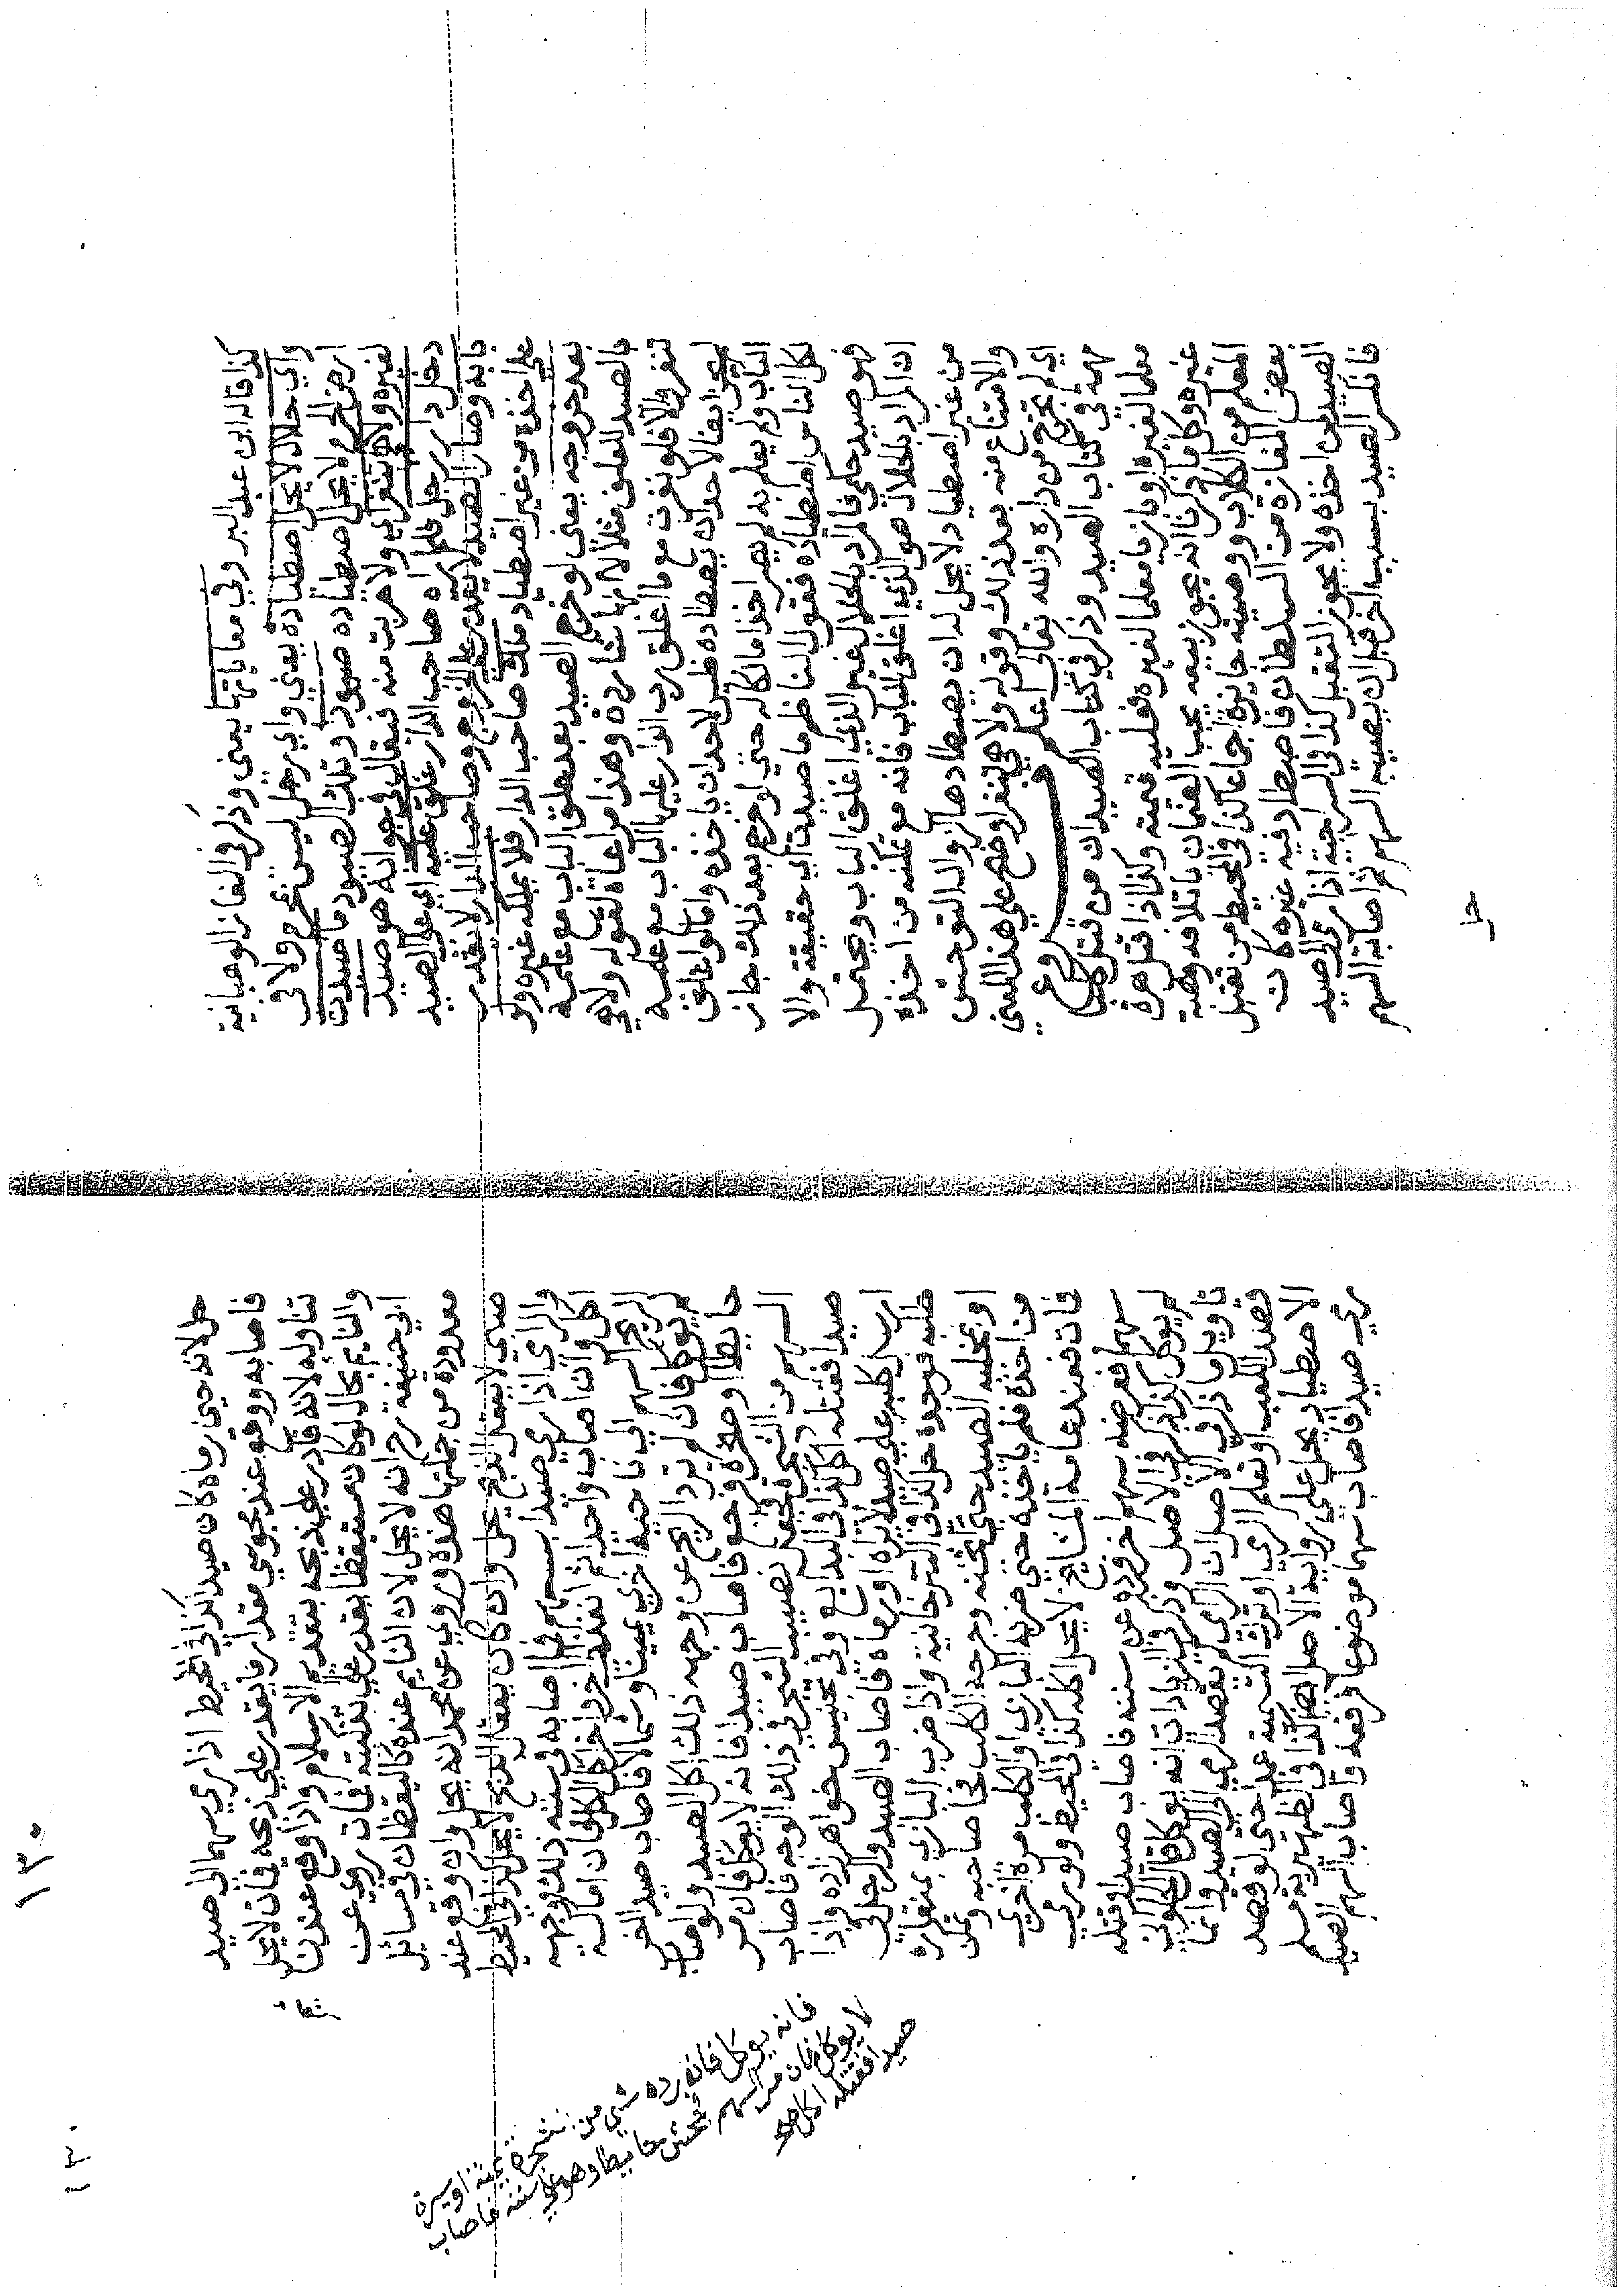 كذا قاله ابن عبد البر وفي معاياتها يعني وذكر في الغاز الوهبانية
واي حلال لا يحل اصطياده يعني واي رجل ليس بمحرم ولا في
ارض الحرم لا يحل اصطياده صيود وتلك الصيود ما صيدت
لغيره ولا هي تنفر اي ولا هربت منه فيقال في جوابه هو صيد
دخل دار رجل فلما راه صاحب الدار غلق عليه اي على الصيد
بابه وصار الصيد لا يقدر على الخروج وصاحب الدار لا يقدر
على اخذه من غير اصطياد ملك صاحب الدار فلا يملكه غيره ولو
بعد خروجه يعني لو خرج الصيد بعد غلق الباب مع علمه
بالصيد المغلق مثلا لانها شاردة وهذا مراعاة لقوله ولا هي
تنفر والا فلو نفرت مع ما اغلق رب الدار عليها الباب مع علمه
لم يجز ايضا لاحد ان يصطاده فليس لاحد ان ياخذه واما لو اغلق
الباب ولم يعلم به لم يصر اخذا مالكا له حتى لو خرج بعد ذلك جاز
لكل الناس اصطياده فقول الناظم ما صيدت اي حقيقة والا
فهو صيد حكمي فالمراد بالحلال غير الذي اغلق الباب ويحتمل
ان المراد بالحلال هو الذي اغلق الباب فانه مع تمكنه من اخذه
من غير اصطياد لا يحل له ان يصطادها لزوال التوحش
والامتناع منه بعد ذلك وقوله ولا هي تنفر اوضح على هذا المعنى
اي لم تخرج من داره والله تعالى اعلم فروع
مهمة في كتاب الصيد وذكر في كتاب الصيد ان من قتل كلبا
معلما لغيره او بازيا معلما لغيره فعليه قيمته وكذا اذا قتل هرة
غيره وكل ما ذكرنا انه يجوز بيعه يجب الضمان باتلافه وهبة
المعلم من الكلاب ووصيته جايزة اجماعا كذا في المحيط من تقبل
بعض المفازة من السلطان فاصطاد فيه غيره كان
الصيد لمن اخذه ولا يجوز التقبل كذا في السراجية اذا رمى الصيد
فانكسر الصيد بسبب اخر قبل ان يصيبه السهم ثم اصابه السهم
حل
حل لانه حين رماه كان صيدا كذا في المحيط اذا رمى سهما الى صيد
فاصابه ووقع عند مجوسي مقدار ما يقدر على ذبحه فمات لا يحل
تناوله لانه قادر على ذبحه بتقديم الاسلام واذا وقع عند نايم
والنايم بحال لو كان مستيقظا يقدر على تذكيته فمات روي عن
ابي حنيفة رح انه لا يحل لان النايم عنده كاليقظان في مسايل
معدودة من جملتها هذه وروي عن محمد انه يحل وان وقع عند
صبي لا يعقل الذبح يحل وان كان يعقل الذبح لا يحل كذا في المحيط
والرامي اذا رمى صيدا بسهم فما اصابه في سننه ذلك ووجهه
اكل وان اصاب واحدا ثم نفذ الى اخر واخر اكل الكل فان امالت
الريح السهم الى ناحية اخرى يمينا وشمالا فاصاب صيدا اخر
لم يؤكل فان لم ترد الريح عن وجهه ذلك اكل الصيد ولو اصاب
حايطا او صخرة فرجع فاصاب صيدا فانه لا يؤكل فان مر
السهم من الشجرة فجعل يصيب الشجر في ذلك الوجه فاصاب
صيدا فقتله اكل كذا في البدايع وفي تجنيس خواهر زاده واذا
ارسل كلبه على صيد لا يراه او رماه فاصاب الصيد والرجل في
طلبه فوجده حل كذا في التترخانية واذا ضرب البازي بمنقاره
او بمخلبه الصيد حتى اثخنه وجرحه الكلب فجا صاحبه وتمكن
من اخذه فلم ياخذه حتى ضربه البازي او الكلب مرة اخرى
فمات فعند عامة المشايخ لا يحل اكله كذا في المحيط ولو رمى
سهما فعرضه سهم اخر فرده عن سننه فاصاب صيدا فقتله
لم يؤكل كذا ذكر في الاصل وذكر في الزيادات انه يؤكل قال الحلواني
تاويل ما ذكر في الاصل ان الرامي لم يقصد الرمي الى الصيد وانما
قصد اللعب او تعلم الرمي او ترك التسمية عمدا حتى لو قصد
الاصطياد يحل على رواية الاصل ايضا كذا في الظهيرية مسلم
رمى صيدا فاصاب سهما موضوعا فرفعه واصاب السهم الصيد
فانه يؤكل فان رده شي من شجرة يمنة او يسرة
لا يؤكل فان مر السهم فخدش حايطا وهو على سننه فاصاب
صيدا فقتله اكل صح
١٣٠
١٣٠